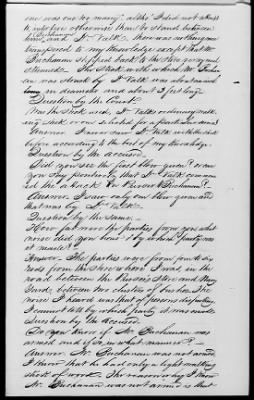 one was one too many," altho' I did not
to interfere otherwise than to stand between
him and Lt. Falk. There was nothing
transpired to my knowledge except that Mr.
Buchanan stepped back to the store grey and
The stick with which Mr. Buchan
an was struck by Lt Falk was about an
in diameter and about 3 feet long
Question by the Court.
Was the stick used, Lt Falk's ordinary walk
ing stick, or one selected for a particular
Answer. I never saw Lt Falk with the stick
before according to the best of my knowledge
Question by the accused.
Did you see the first blow given? or can
you say positively that Lt Falk commen
ced the attack on Prisoner Buchanan?
Answer. I saw only one blow given and
that was by Lt Falk.
Question by the same.
How far were the parties from you what
noise did you hear & by which party was
it made?
Answer. The parties were from four to six
rods from the store where I was, in the
road between the Prison's Store and
Yard; between two clusters of bushes. The
noise I heard was that of persons disputing
I cannot tell by which party it was made
Question by the accused.
Do you know if Mr. Buchanan was
armed and if so in what manner?
Answer. Mr. Buchanan was not armed
I know that he had only a light walking
stick of wood. The reason why I know
Mr. Buchanan was not armed is that